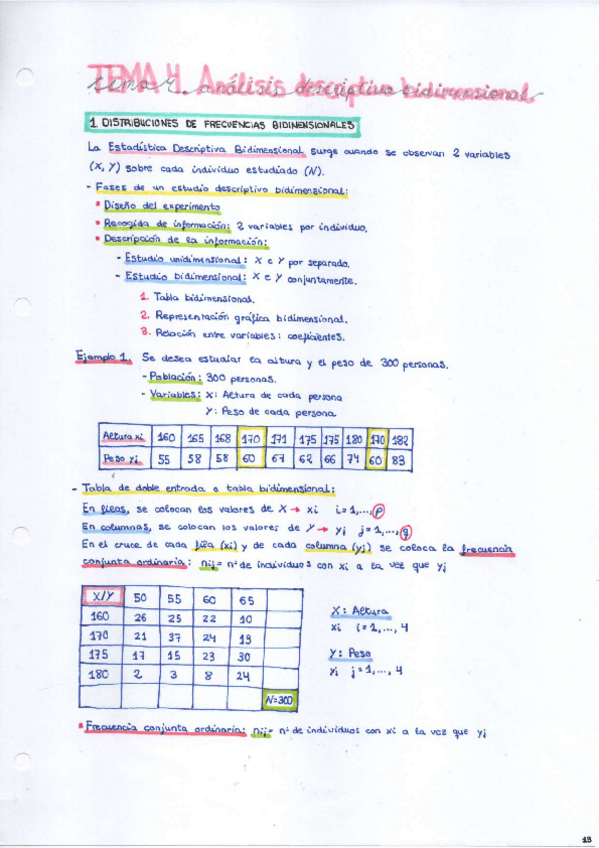 TEMA 4. Análisis descriptivo bidimensional
1 DISTRIBUCIONES DE FRECUENCIAS BIDIMENSIONALES
La Estadística Descriptiva Bidimensional surge cuando se observan 2 variables
(X, Y) sobre cada individuo estudiado (N).
- Fases de un estudio descriptivo bidimensional:
* Diseño del experimento
* Recogida de información: 2 variables por individuo.
* Descripción de la información:
- Estudio unidimensional: X e Y por separado.
- Estudio bidimensional: X e Y conjuntamente.
1. Tabla bidimensional.
2. Representación gráfica bidimensional.
3. Relación entre variables: coeficientes.
Ejemplo 1. Se desea estudiar la altura y el peso de 300 personas.
- Población: 300 personas.
- Variables: X: Altura de cada persona
Y: Peso de cada persona
Altura xi 160 165 168 170 171 175 175 180 170 182
Peso yi 55 58 58 60 67 62 66 74 60 83
- Tabla de doble entrada o tabla bidimensional:
En filas, se colocan los valores de X → xi i=1,...,p
En columnas, se colocan los valores de Y → yj j=1,...,q
En el cruce de cada fila (xi) y de cada columna (yj) se coloca la frecuencia
conjunta ordinaria: nij= nº de individuos con xi a la vez que yj
X/Y 50 55 60 65
160 26 25 22 10
170 21 37 24 13
175 17 15 23 30
180 2 3 8 24
N=300
X: Altura
xi i=1,...,4
Y: Peso
yj j=1,...,4
* Frecuencia conjunta ordinaria: nij= nº de individuos con xi a la vez que yj
13